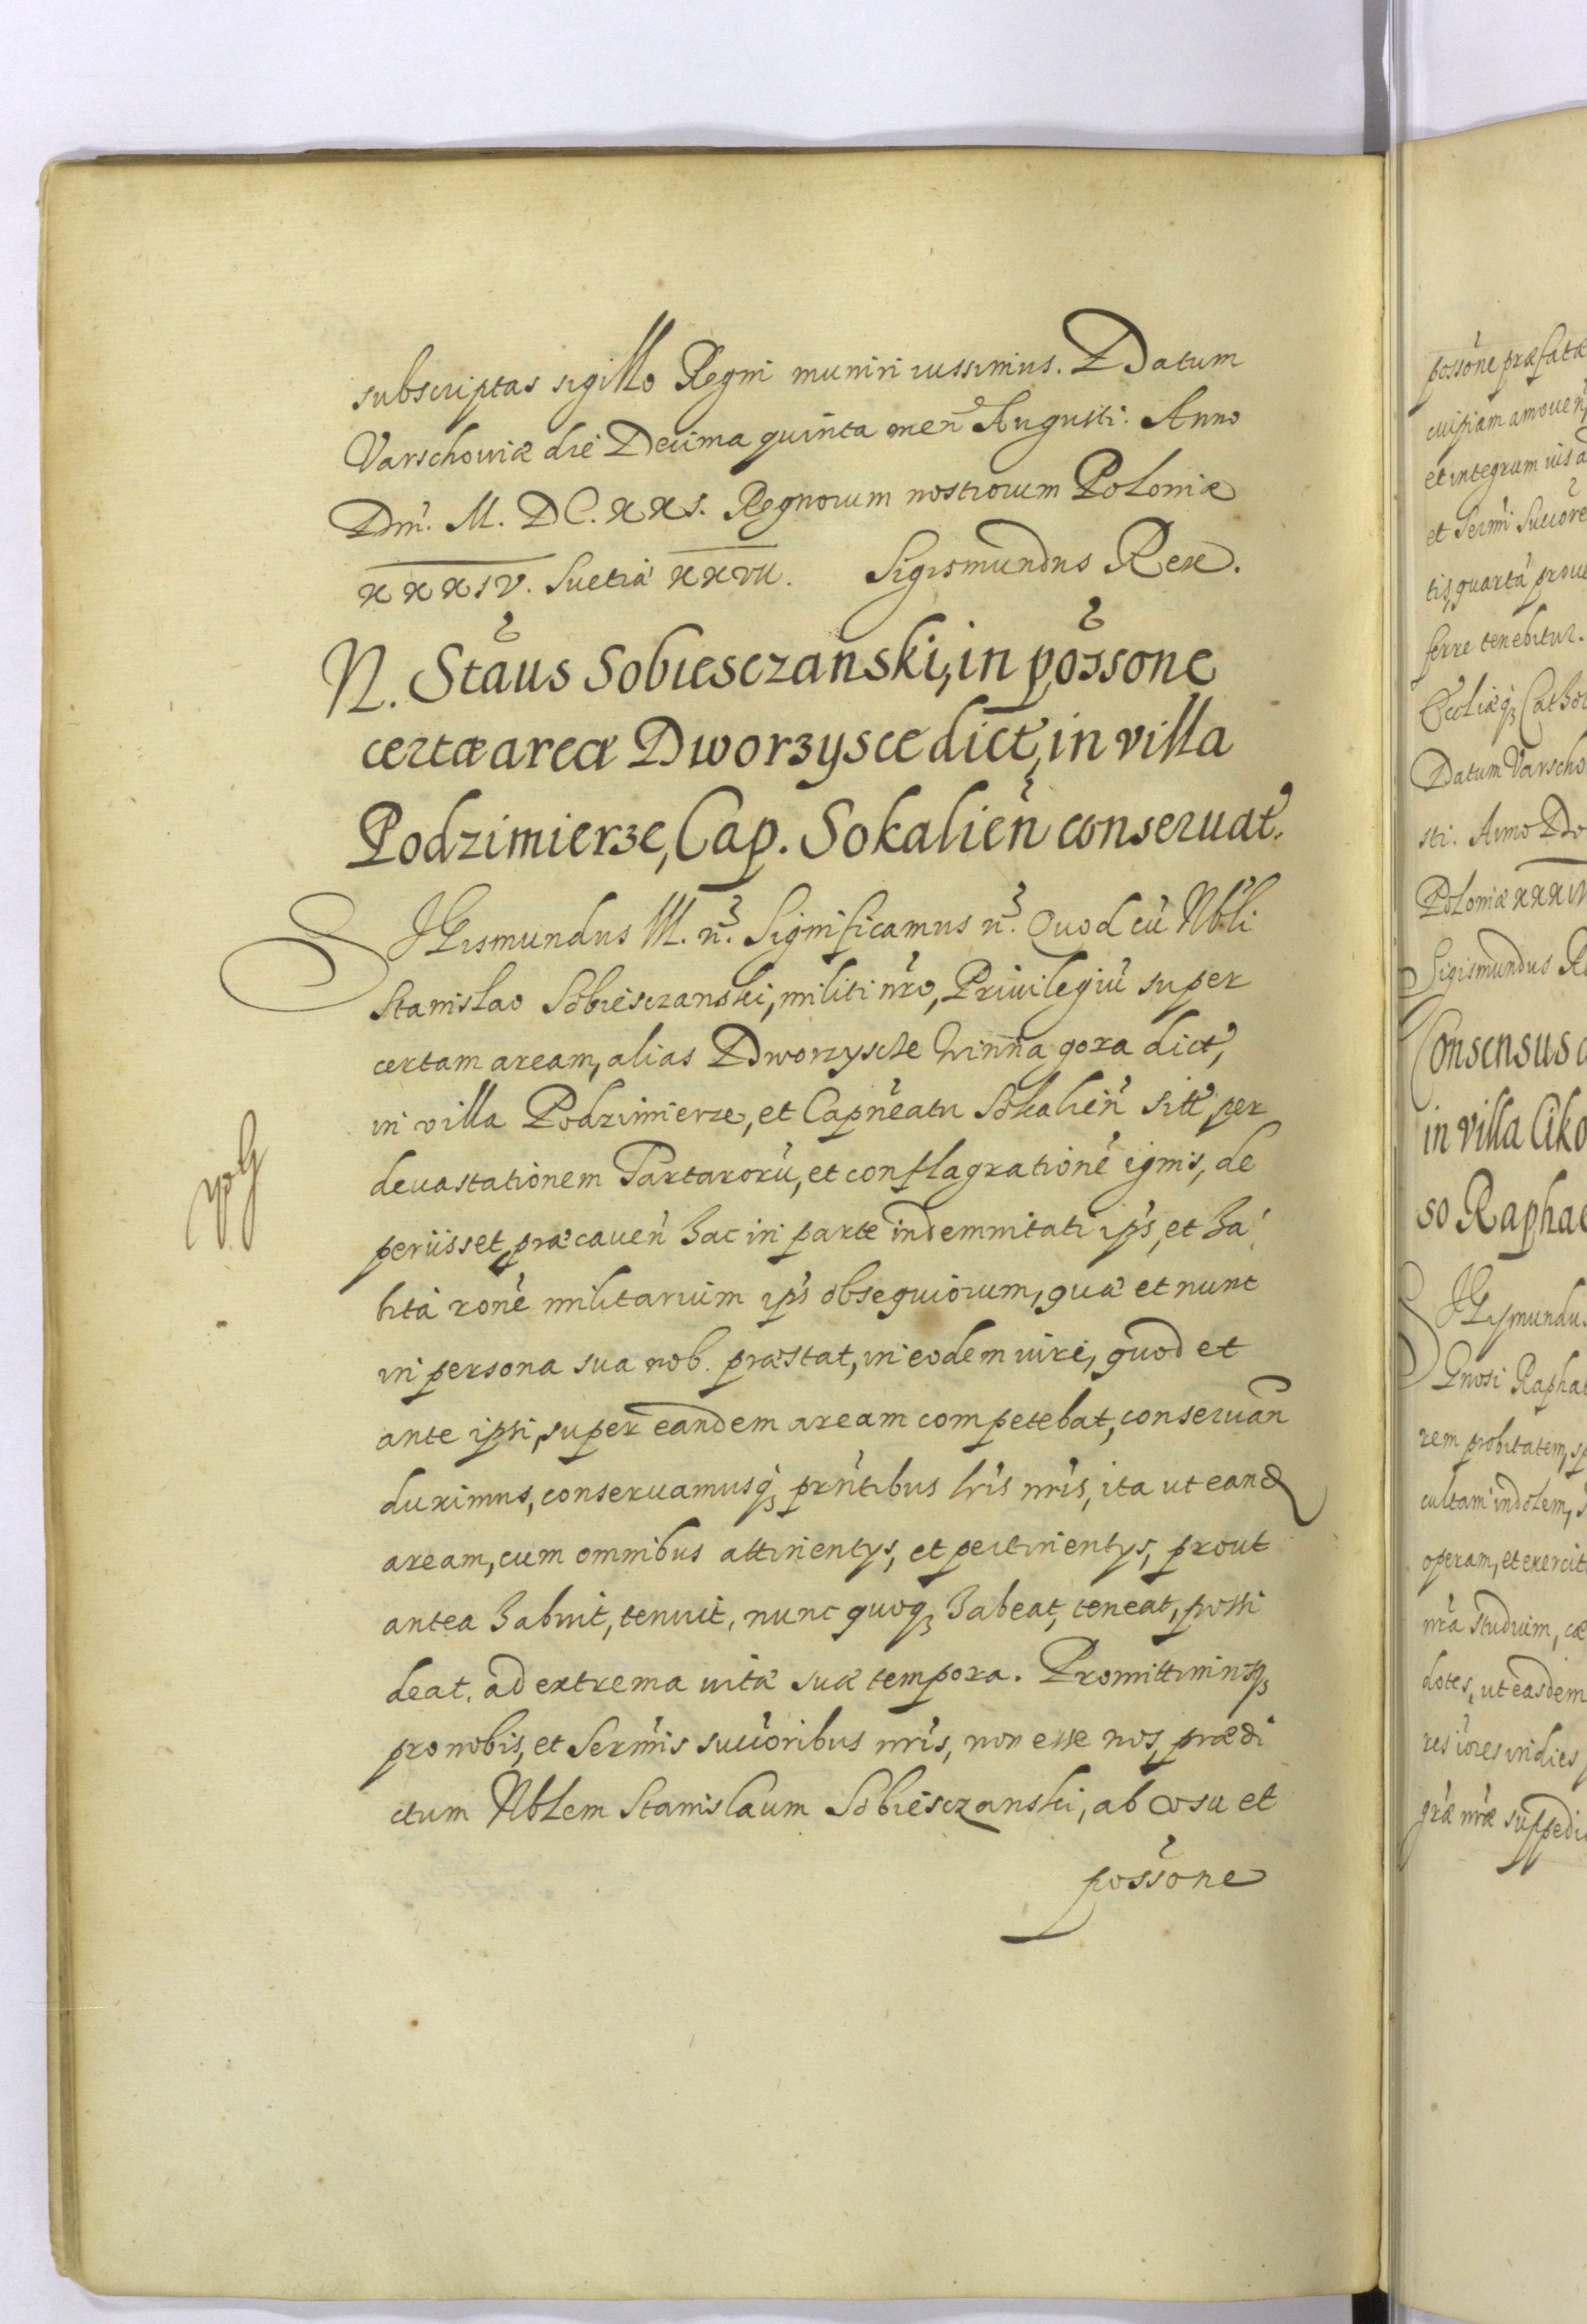 subscriptas sigillo Regni muniri iussimus. Datum
Varschoviæ die Decima quinta men̄ Augusti. Anno
Dn̄i. M. DC. XXI. Regnorum nostrorum Poloniæ
XXXIV. Suetiæ XXVII. Sigismundus Rex.
N. Stāus Sobiesczanski, in pōssone
certæ areæ Dworzysce dict, in villa
Podzimierze, Cap. Sokalien̄ conseruat.
SIGismundus III. n̄. Significamus n̄. Quod cū Nbli
Stanislao Sobiesczanski, militi nr̄o, Priuilegiū super
certam aream, alias Dworzysche Winna gora dict,
in villa Podzimierze, et Capn̄eatu Sokalien̄ sitt per
deuastationem Tartarorū, et conflagrationē ignis, de
periisset, præcauen̄ hac in parte indemnitati ips̄, et ha
bita ron̄e militarium ips̄ obsequiorum, quæ et nunc
in persona sua nob. præstat, in eodem iure, quod et
ante ipsi, super eandem aream competebat, conseruan̄
duximus, conseruamusq̨ prn̄tibus lr̄is nr̄is, ita ut eand
aream, cum omnibus attinentys, et pertinentys, prout
antea habuit, tenuit, nunc quoq̨ habeat, teneat, possi
deat, ad extrema uitæ suæ tempora. Promittimusq̨
pro nobis, et Serm̄is succ̄oribus nr̄is, non esse nos, prædi
ctum Nblem Stanislaum Sobiesczanski, ab usu et
poss̄one
possōne præfatæ
cuipiam amouen̄
et integrum ius a
et Serm̄i Succ̄ore
tis, quartā proue
ferre tenebitur.
Eccliæq̨ Cathol
Datum Varscho
sti. Anno Do
Poloniæ XXXIV
Sigismundus R
Consensus
in villa Ciko
so Raphae
SIGismundus
Gnosi Raphae
rem probitatem, sp
cultam indolem,
operam, et exercit
nr̄a studium, cæ
dotes, ut easdem
res iores in dies
gr̄æ nr̄æ suppedi